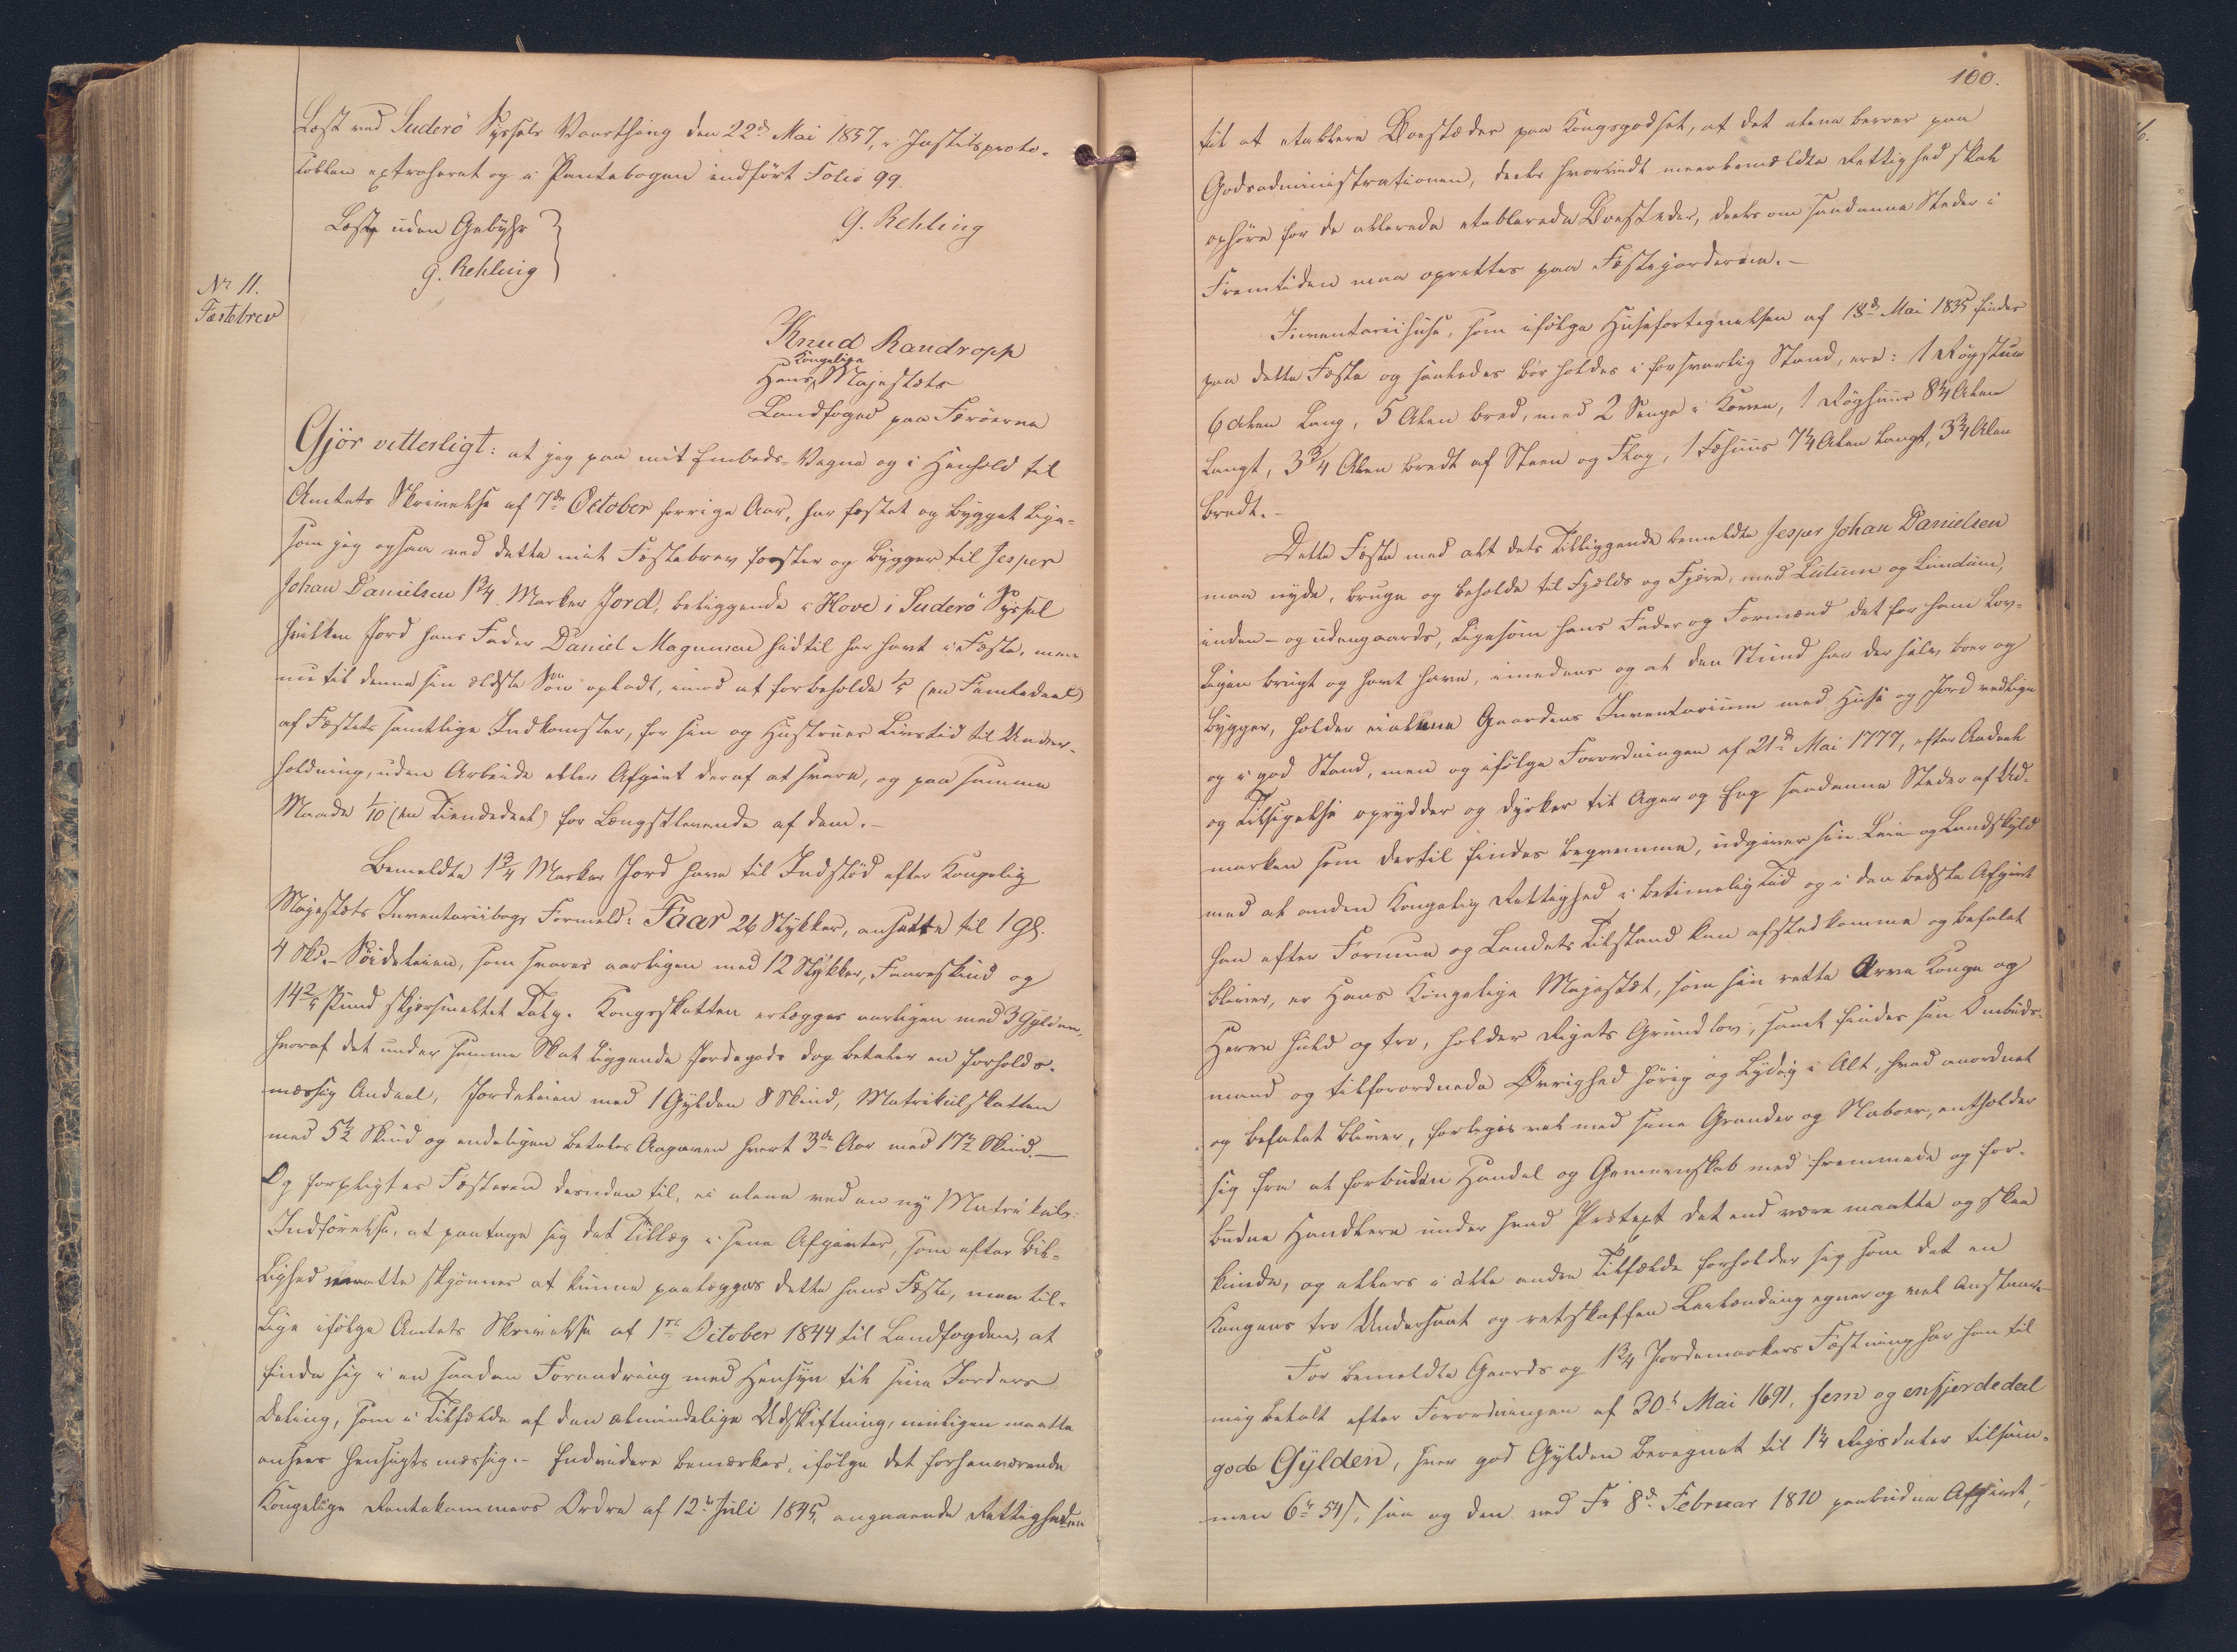 Læst ved Suderö Syssels Vaarthing den 22de Mai 1857, i Justitsproto-
kollen extraheret og i Pantebogen indført Folio 99.
G. Rehling
Læst uden Gebyhr
G. Rehling
No 11.
Fæstebrev
Knud Randropp
Hans Kongelige Majestæts
Landfoged paa Færöerne
Gjör vitterligt: at jeg paa mit Embeds-Vegne og i Henhold til
Amtets Skrivelse af 7de October forrige Aar, har fæstet og bygget lige-
som jeg ogsaa ved dette mit Fæstebrev fæster og bygger til Jesper
Johan Danielsen 1 3/4 Marker Jord, beliggende i Hove i Suderö Syssel
hvilken Jord hans Fader Daniel Magnussen hidtil har havt i Fæste, men
nu til denne sin ældste Søn opladt, imod at forbeholde 1/5 (en Femtedeel)
af Fæstets samtlige Indkomster, for sin og Hustrues Livstid til Under-
holdning, uden Arbeide eller Afgivt deraf at svare, og paa samme
Maade 1/10 (en Tiendedeel) for Længstlevende af dem.-
Bemeldte 1 3/4 Marker Jord have til Indstød efter Kongelig
Majestæts Inventariibogs Formeld: Faar 26 Stykker, ansatte til 1 Gl.
4 Skd.- Søideleien, som svares aarligen med 12 Stykker, Faareskind og
14 2/5 Pund skjørsmeltet Talg. Kongsskatten erlægges aarligen med 3 Gylden,
hvoraf det under samme Skat liggende Jordegods dog betaler en forholds-
mæssig Andeel, Jordeleien med 1 Gylden 8 Skind, Matrikulskatten
med 5 1/2 Skind og endeligen betales Aagaven hvert 3de Aar med 17 1/2 Skind.-
Og forpligtes Fæsteren desuden til, ei alene ved en ny Matrikuls-
Indførelse, at paatage sig det Tillæg i sine Afgivter, som efter Bil-
lighed maatte skjønnes at kunne paalægges dette hans Fæste, men til-
lige ifølge Amtets Skrivelse af 1ste October 1844 til Landfogden, at
finde sig i en saadan Forandring med Hensyn til sine Jorders
Deling, som i Tilfælde af den almindelige Udskiftning, muligen maatte
ansees hensigtsmæssig.- Endvidere bemærkes, ifølge det forhenværende
Kongelige Rentekammers Ordre af 12te Juli 1845, angaaende Rettigheden
100.
til at etablere Boesteder paa Kongsgodset, at det alene beroer paa
Godsadministrationen, deels hvorvidt meerbemældte Rettighed skal
ophøre for de allerede etablerede Boesteder, deels om saadanne Steder i
Fremtiden maa oprettes paa Fæstejorderne.-
Inventariihuse, som ifølge Husefortegnelsen af 18de Mai 1835 findes
paa dette Fæste og saaledes bør holdes i forsvarlig Stand, ere: 1 Røgstue
6 Alen lang, 5 Alen bred, med 2 Senge i Koven, 1 Røghuus 8 3/4 Alen
langt, 3 3/4 Alen bredt af Steen og Flag, 1 Fæhuus 7 1/4 Alen langt, 3 3/4 Alen
bredt.-
Dette Fæste med alt dets Tilliggende bemeldte Jesper Johan Danielsen
maa nyde, bruge og beholde til Fjælds og Fjære, med Lutum og Lundum,
inden- og udengaards, ligesom hans Fader og Formænd det for ham lov-
ligen brugt og havt have, imedens og al den Stund han der selv boer og
bygger, holder ei alene Gaardens Inventarium med Huse og Jord vedlige
og i god Stand, men og ifølge Forordningen af 21de Mai 1777, efter Andeel
og Tilsigelse oprydder og dyrker til Ager og Eng saadanne Steder af Ud-
marken som dertil findes beqvemme, udgiver sin Leie og Landskyld
med al anden Kongelig Rettighed i betimelig Tid og i den bedste Afgivt
han efter Formue og Landets Tilstand kan afstedkomme og befalet
bliver, er Hans Kongelige Majestæt, som sin rette Arve Konge og
Herre huld og tro, holder Rigets Grundlov, samt findes sin Ombuds-
mand og tilforordnede Øvrighed hørig og lydig i Alt, hvad anordnet
og befalet bliver, forliges vel med sine Grander og Naboer, entholder
sig fra al forbuden Handel og Gemeenskab med fremmede og for-
budne Handlere under hvad Prætext det end være maatte og skee
kunde, og ellers i alle andre Tilfælde forholder sig som det en
Kongens tro Undersaat og retskaffen Leilænding egner og vel anstaaer
For bemeldte Gaards og 1 3/4 Jordemarkers Fæstning har han til
mig betalt efter Forordningen af 30te Mai 1691, fem og en fjerdedeel
gode Gylden, hver god Gylden beregnet til 1 1/4 Rigsdaler tilsam-
men 6 rd 54 s, saa og den ved Fr 8de Februar 1810 paabudne Afgivt,